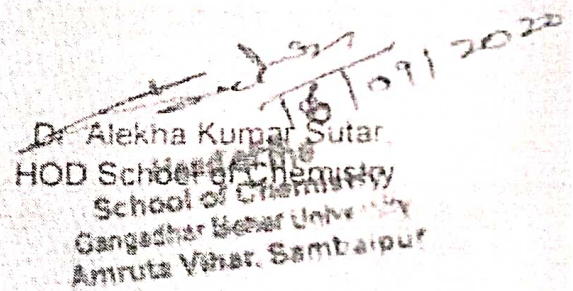 18/09/2022
Dr Alekha Kumar Sutar
HOD School of Chemistry
School of Chemistry
Gangadhar Meher University
Amruta Vihar, Sambalpur